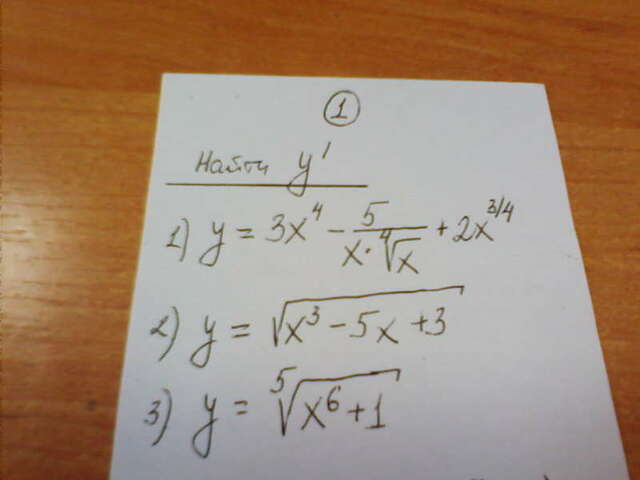 1
Найти y'
1) y = 3x⁴ - 5/(x·⁴√x) + 2x^(3/4)
2) y = √(x³ - 5x + 3)
3) y = ⁵√(x⁶ + 1)